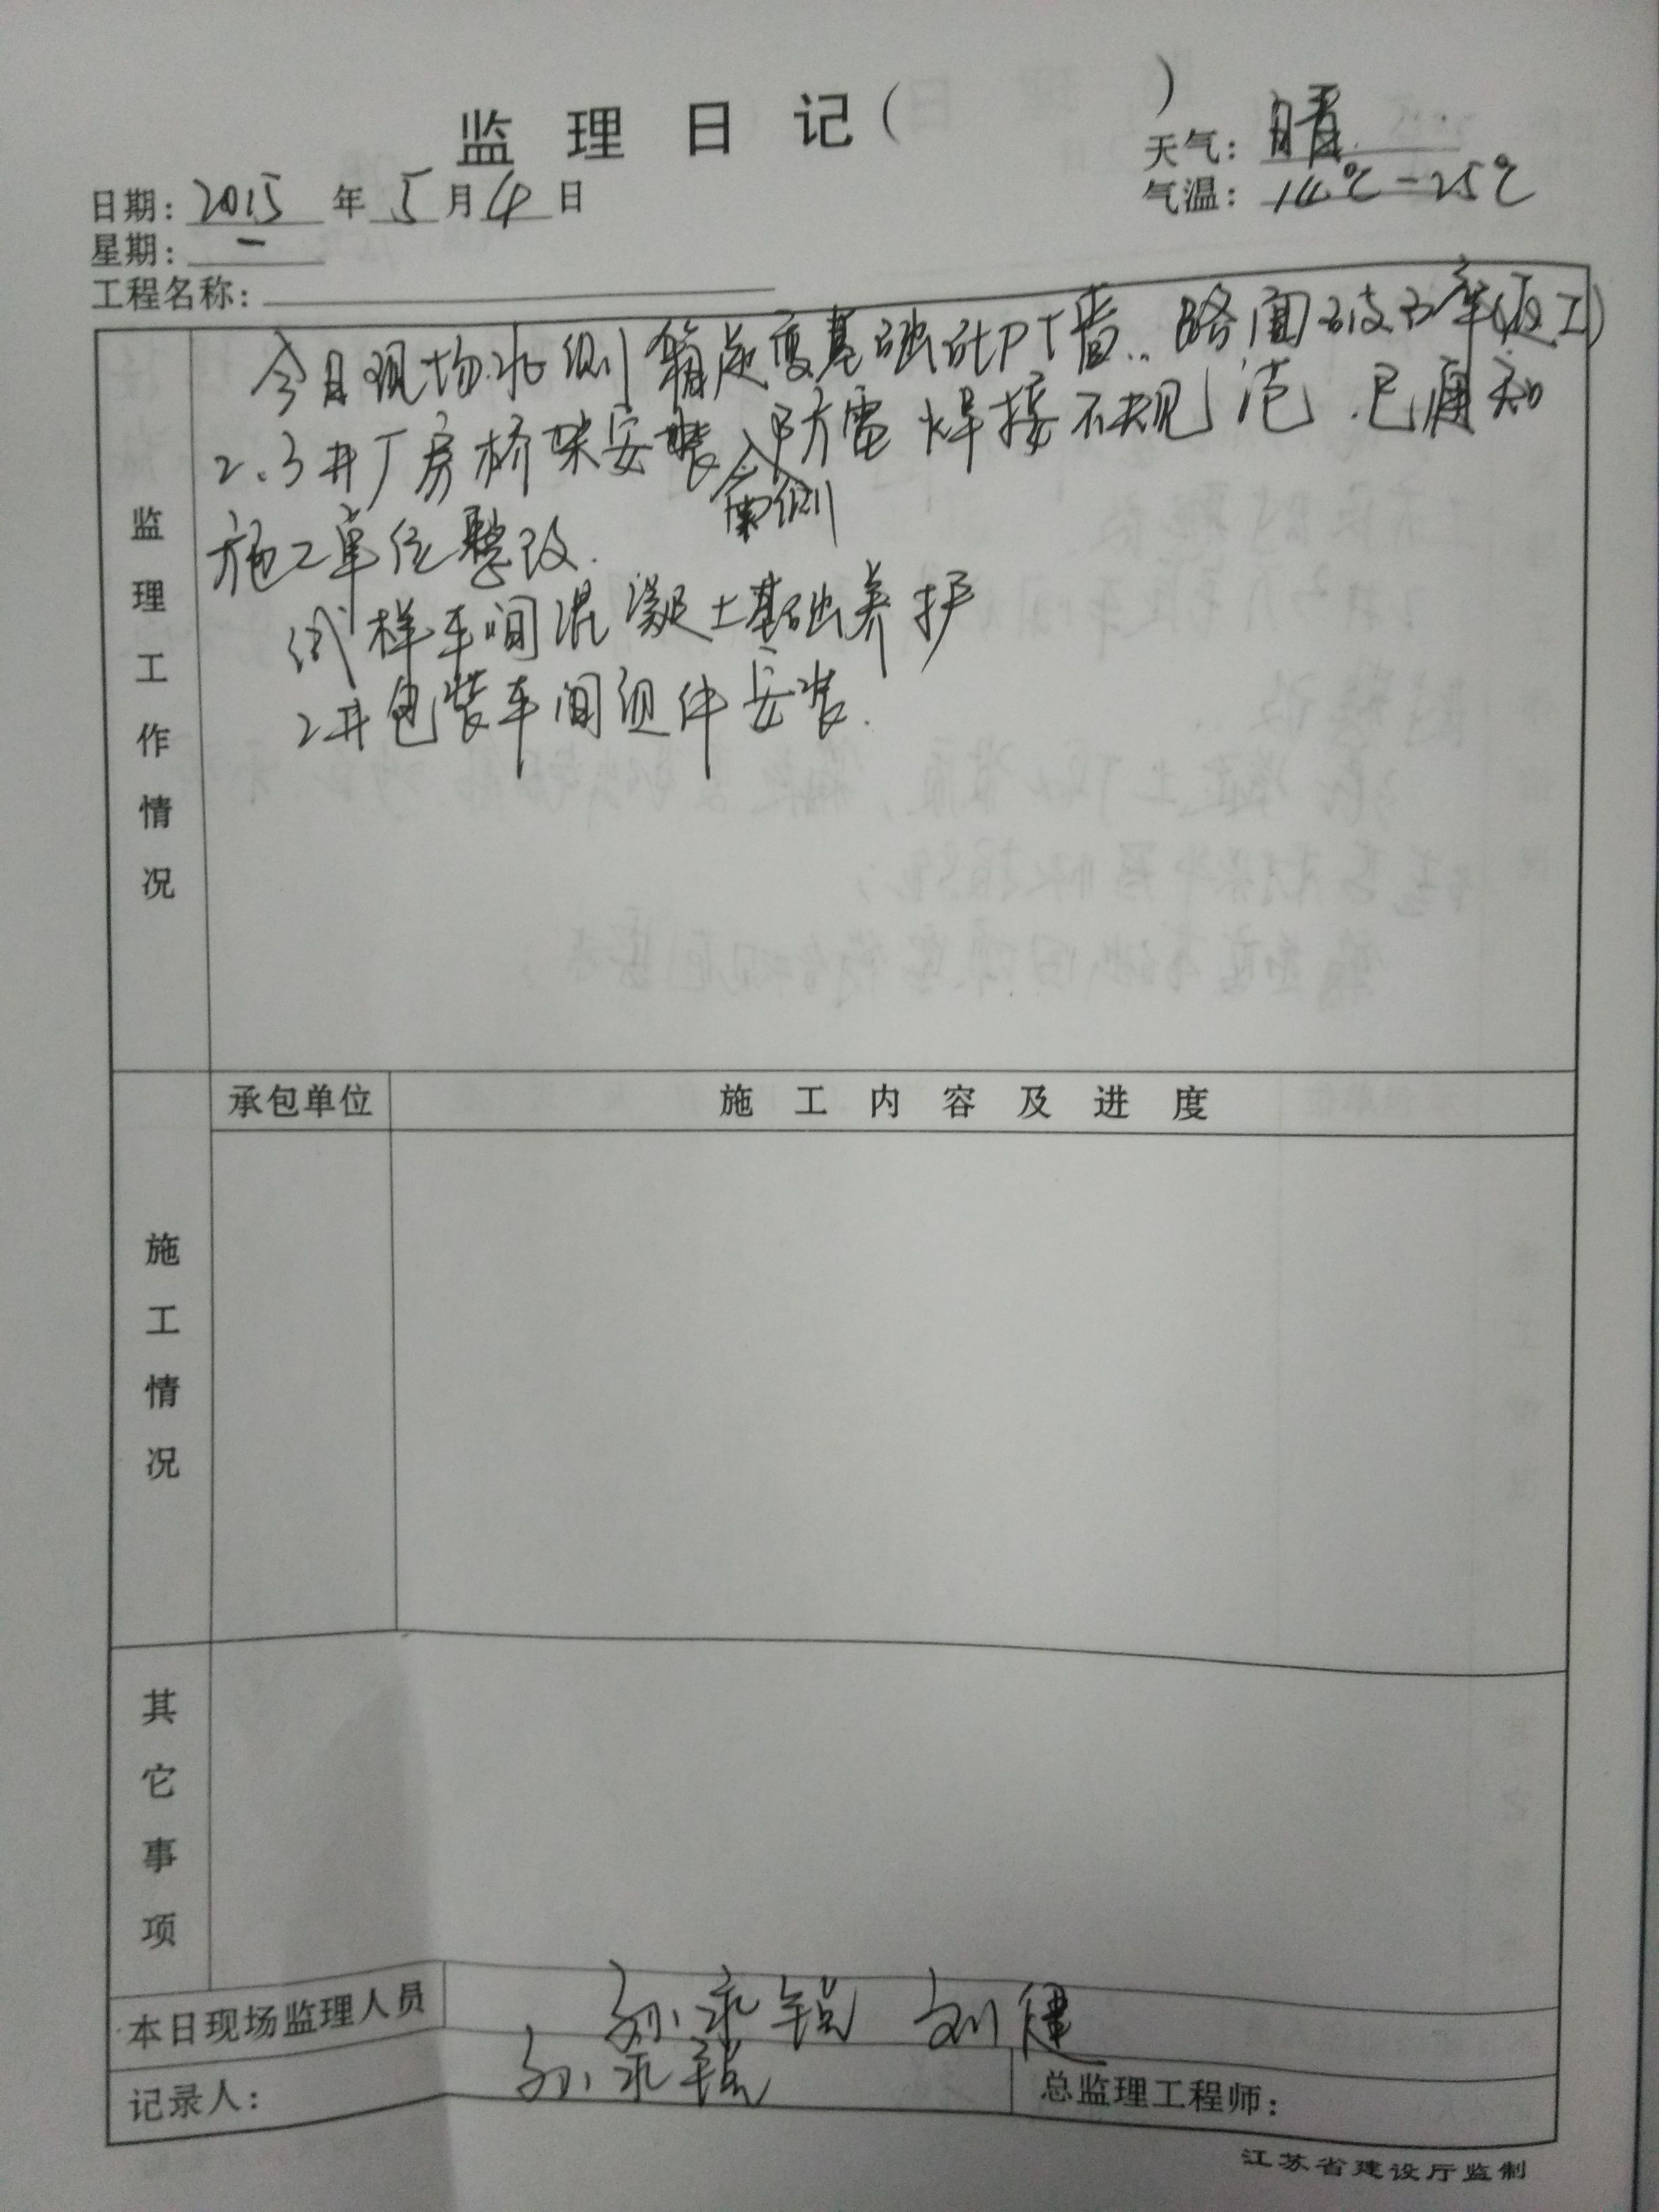 监理日记( )
天气: 晴
日期: 2015 年 5 月 4 日
气温: 14℃-25℃
星期: 一
工程名称:
监理工作情况
今日现场北侧箱变基础砌墙.. 路面破碎(返工)
2.3#厂房桥架安装, 防雷焊接不规范.已通知
南侧
施工单位整改.
试样车间混凝土基础养护
2#包装车间组件安装.
承包单位 施工内容及进度
施工情况
其它事项
本日现场监理人员 孙永锁 刘健
记录人: 孙永锁 总监理工程师:
江苏省建设厅监制